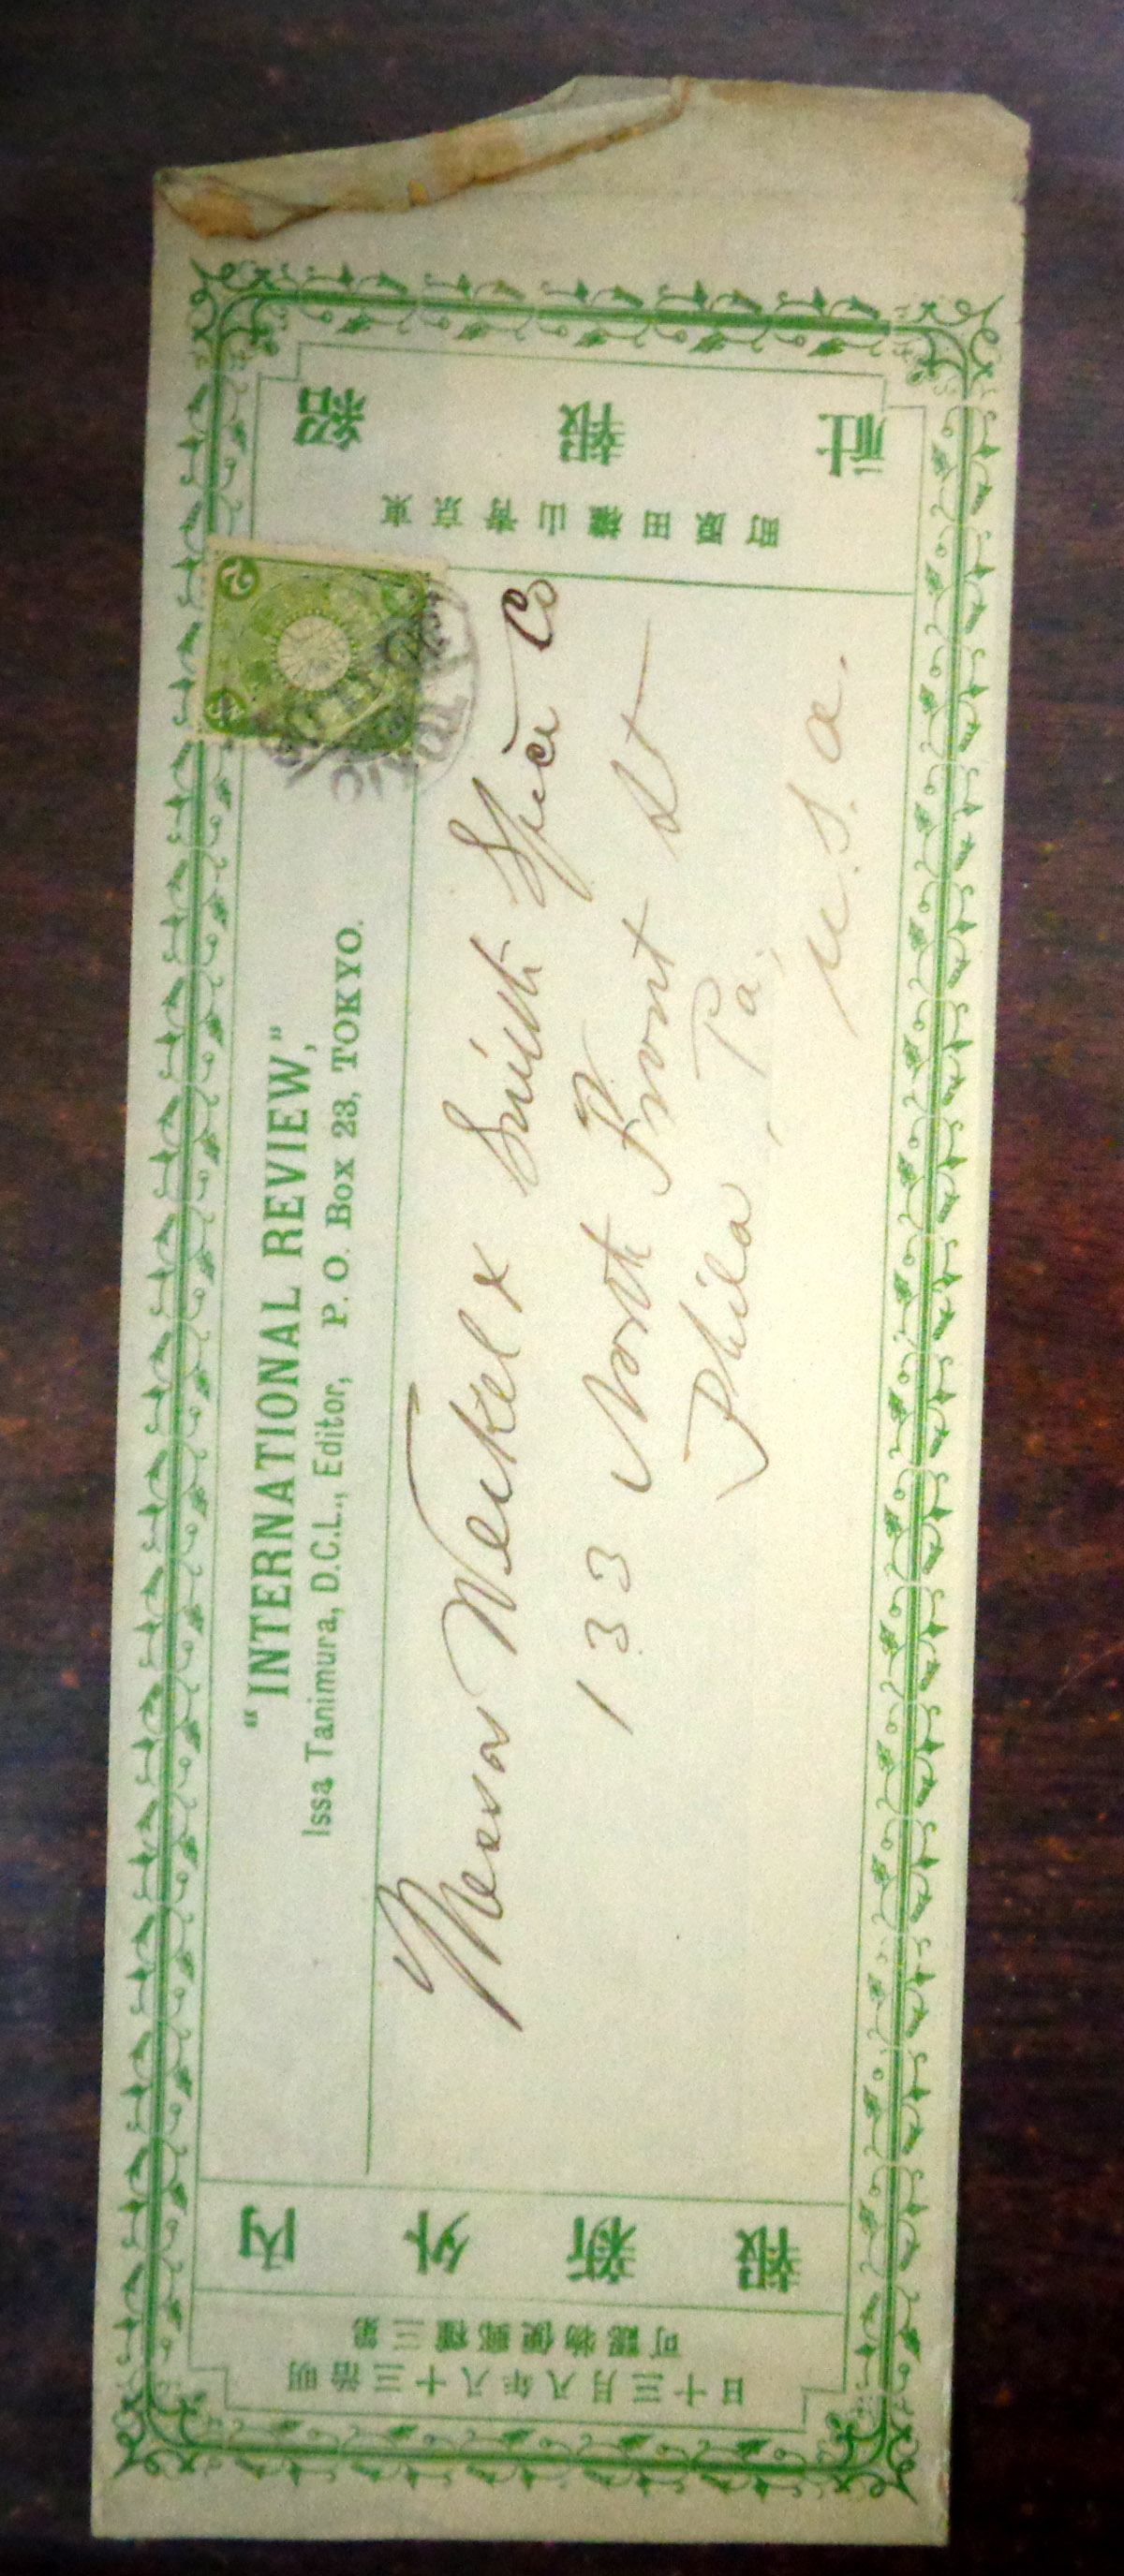 "INTERNATIONAL REVIEW,"
Issa Tanimura, D.C.L., Editor, P. O. Box 23, TOKYO.
Messrs Weikel & Smith Spice Co
133 North Front St
Phila, Pa,
U.S.A.
紹報社
東京青山權田原町
内外新報
第三種郵便物認可
明治三十八年八月三十日
2